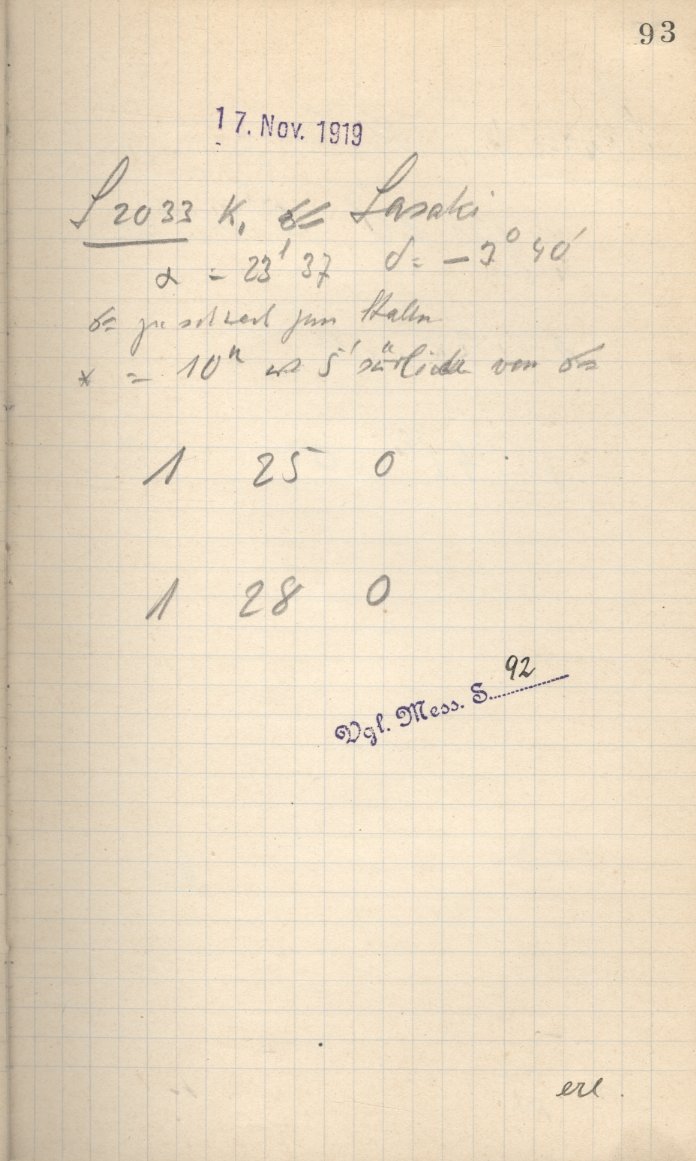 93
17. Nov. 1919
S 2033 K, ☄ Sasaki
α = 23 37 δ = – 7° 40'
☄ zu schwach zum
* = 10ᵐ 5' südlich von ☄
1 25 0
1 28 0
Vgl. Mess. S. 92
erl.